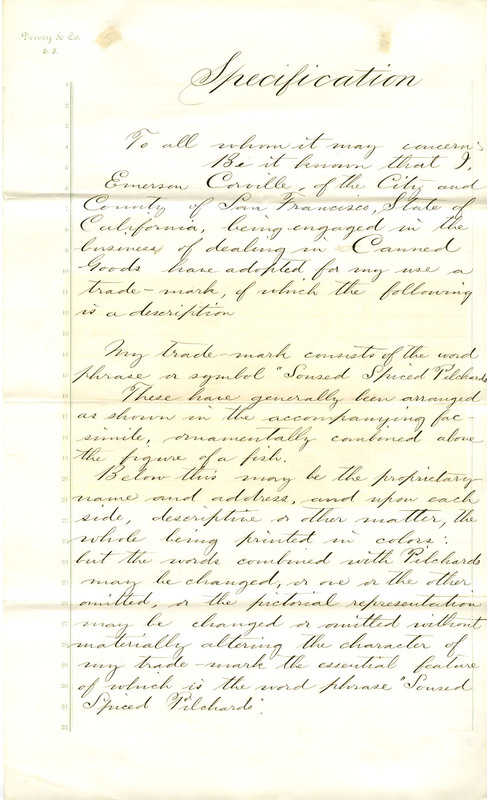 Dewey & Co.
S. F.
Specification
To all whom it may concern:
Be it known that I,
Emerson Corville, of the City and
County of San Francisco, State of
California, being engaged in the
business of dealing in Canned
Goods have adopted for my use a
trade-mark, of which the following
is a description
My trade-mark consists of the word
phrase or symbol "Soused Spiced Pilchards
These have generally been arranged
as shown in the accompanying fac-
simile, ornamentally combined above
the figure of a fish.
Below this may be the proprietary
name and address, and upon each
side, descriptive or other matter, the
whole being printed in colors:
but the words combined with Pilchards
may be changed, or one or the other
omitted, or the pictorial representation
may be changed or omitted without
materially altering the character of
my trade-mark the essential feature
of which is the word phrase "Soused
Spiced Pilchards".